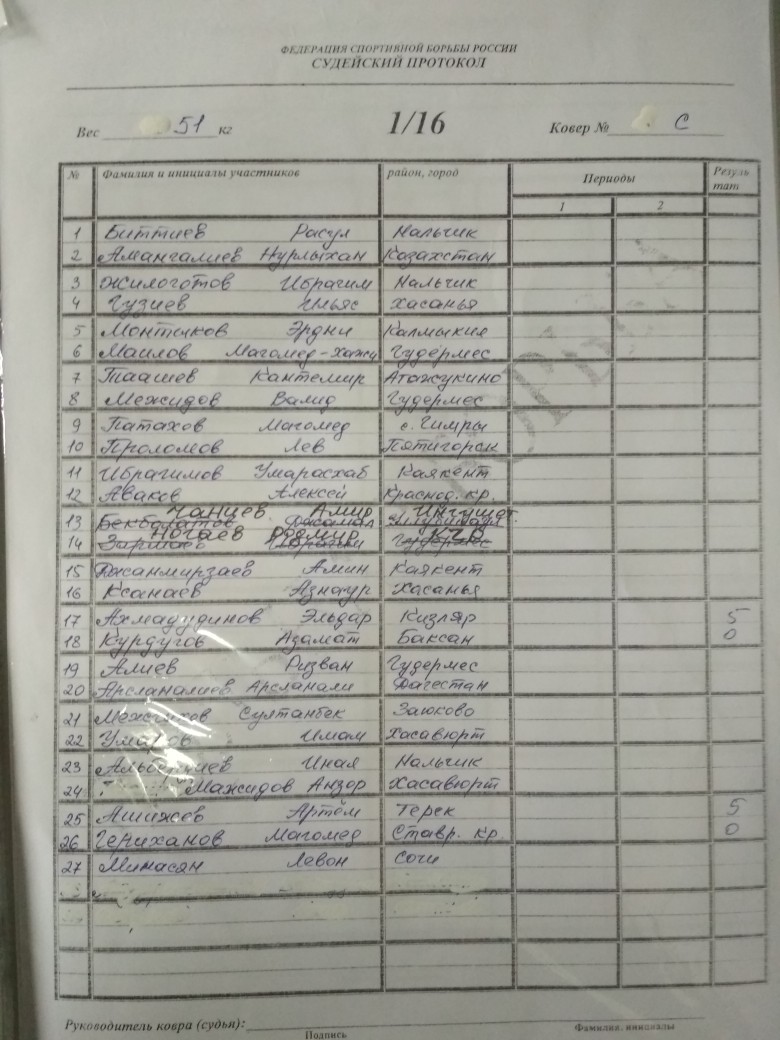 ФЕДЕРАЦИЯ СПОРТИВНОЙ БОРЬБЫ РОССИИ
СУДЕЙСКИЙ ПРОТОКОЛ
Вес 51 кг 1/16 Ковер № С
№ Фамилия и инициалы участников район, город Периоды Резуль тат
1 2
1 Биттиев Расул Нальчик
2 Амангалиев Нурлыхан Казахстан
3 Жилоготов Ибрагим Нальчик
4 Гузиев Ильяс Хасанья
5 Монтыков Эрдни Калмыкия
6 Маилов Магомед-Хажи Гудермес
7 Таашев Кантемир Атажукино
8 Межидов Валид Гудермес
9 Патахов Магомед с. Гимры
10 Проломов Лев Пятигорск
11 Ибрагимов Умарасхаб Каякент
12 Аваков Алексей Краснод. кр.
Чаниев Амир Ингушет.
13 Бекболатов
Ногаев КЧР
14 Гудермес
15 Джанмирзаев Амин Каякент
16 Ксанаев Азнаур Хасанья
17 Ахмадудинов Эльдар Кизляр 5
18 Курдугов Азамат Баксан 0
19 Алиев Ризван Гудермес
20 Арсланалиев Арсланали Дагестан
21 Султанбек Заюково
22 Умаров Имам Хасавюрт
23 Нальчик
24 Мажидов Анзор Хасавюрт
25 Ашижев Артём Терек 5
26 Гериханов Магомед Ставр. кр. 0
27 Минасян Левон Сочи
Руководитель ковра (судья):
Подпись Фамилия. инициалы